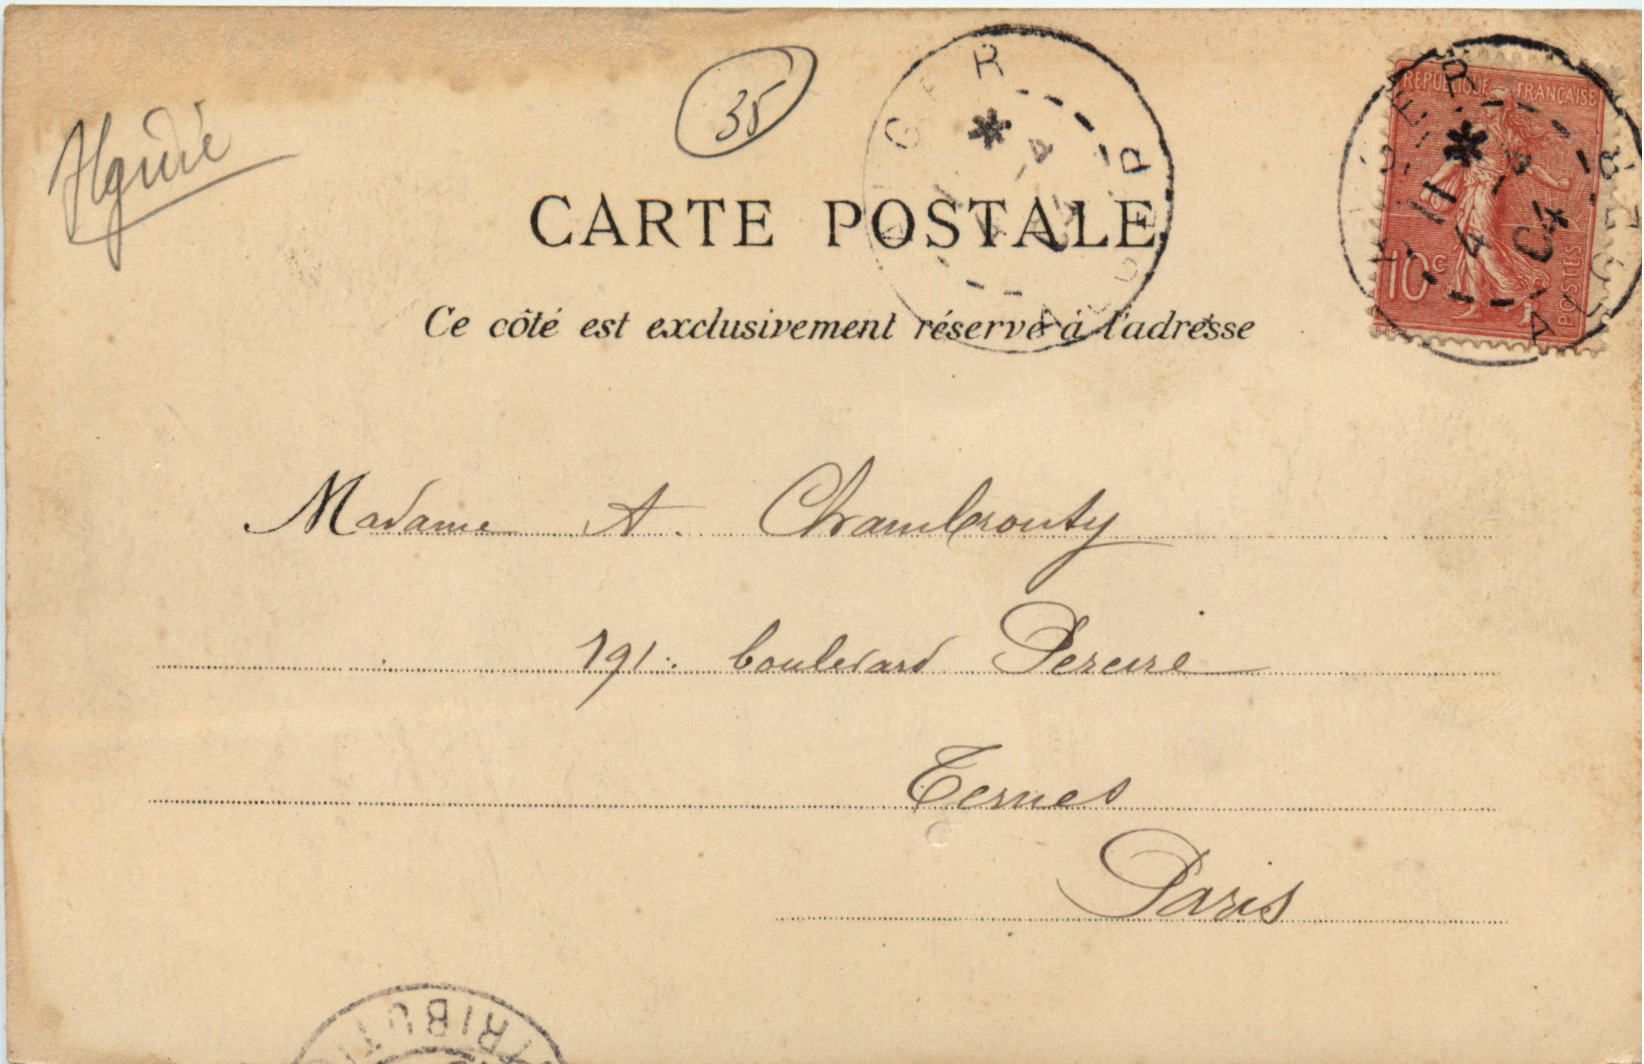 Algérie
35
CARTE POSTALE
Ce côté est exclusivement réservé à l'adresse
RÉPUBLIQUE FRANÇAISE
10c
POSTES
ALGER
11
4
04
ALGER
Madame A. Chambrouty
191. boulevard Pereire
Ternes
Paris
TRIBUTI